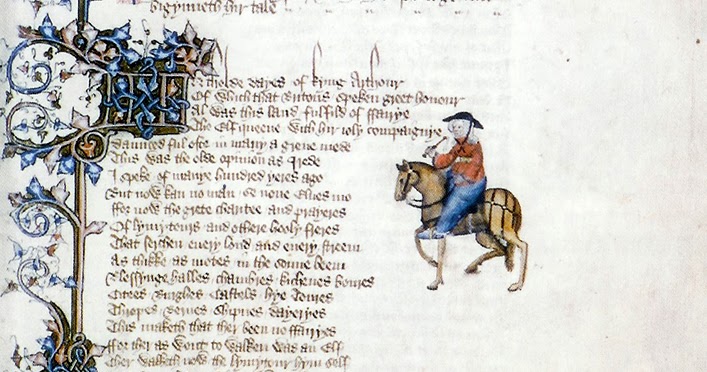 Bigynneth hir tale
In tholde dayes of kyng Arthour
Of which that Britons speken greet honour
Al was this land fulfild of ffairye
The Elf queene with hir ioly compaignye
Daunced ful ofte in many a grene mede
This was the olde opinion as I rede
I speke of manye hundred yeres ago
But now kan no man se none Elues mo
ffor now the grete charitee and prayeres
Of lymytours and othere hooly freres
That serchen euery lond and euery streem
As thikke as motes in the sonne beem
Blessynge halles chambres kichenes boures
Citees Burghes Castels hye Toures
Thropes Bernes Shipnes dayeryes
This maketh that ther been no ffairyes
ffor ther as wont to walken was an Elf
Ther walketh now the lymytour hym self